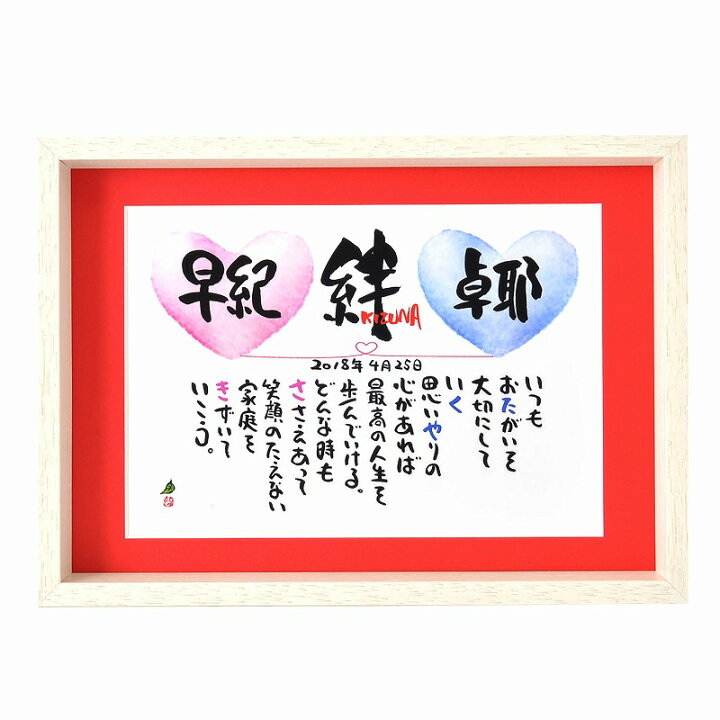 早紀
絆
KIZUNA
卓耶
2018年4月25日
いつも
おたがいを
大切にして
いく
思いやりの
心があれば
最高の人生を
歩んでいける。
どんな時も
ささえあって
笑顔のたえない
家庭を
きずいて
いこう。